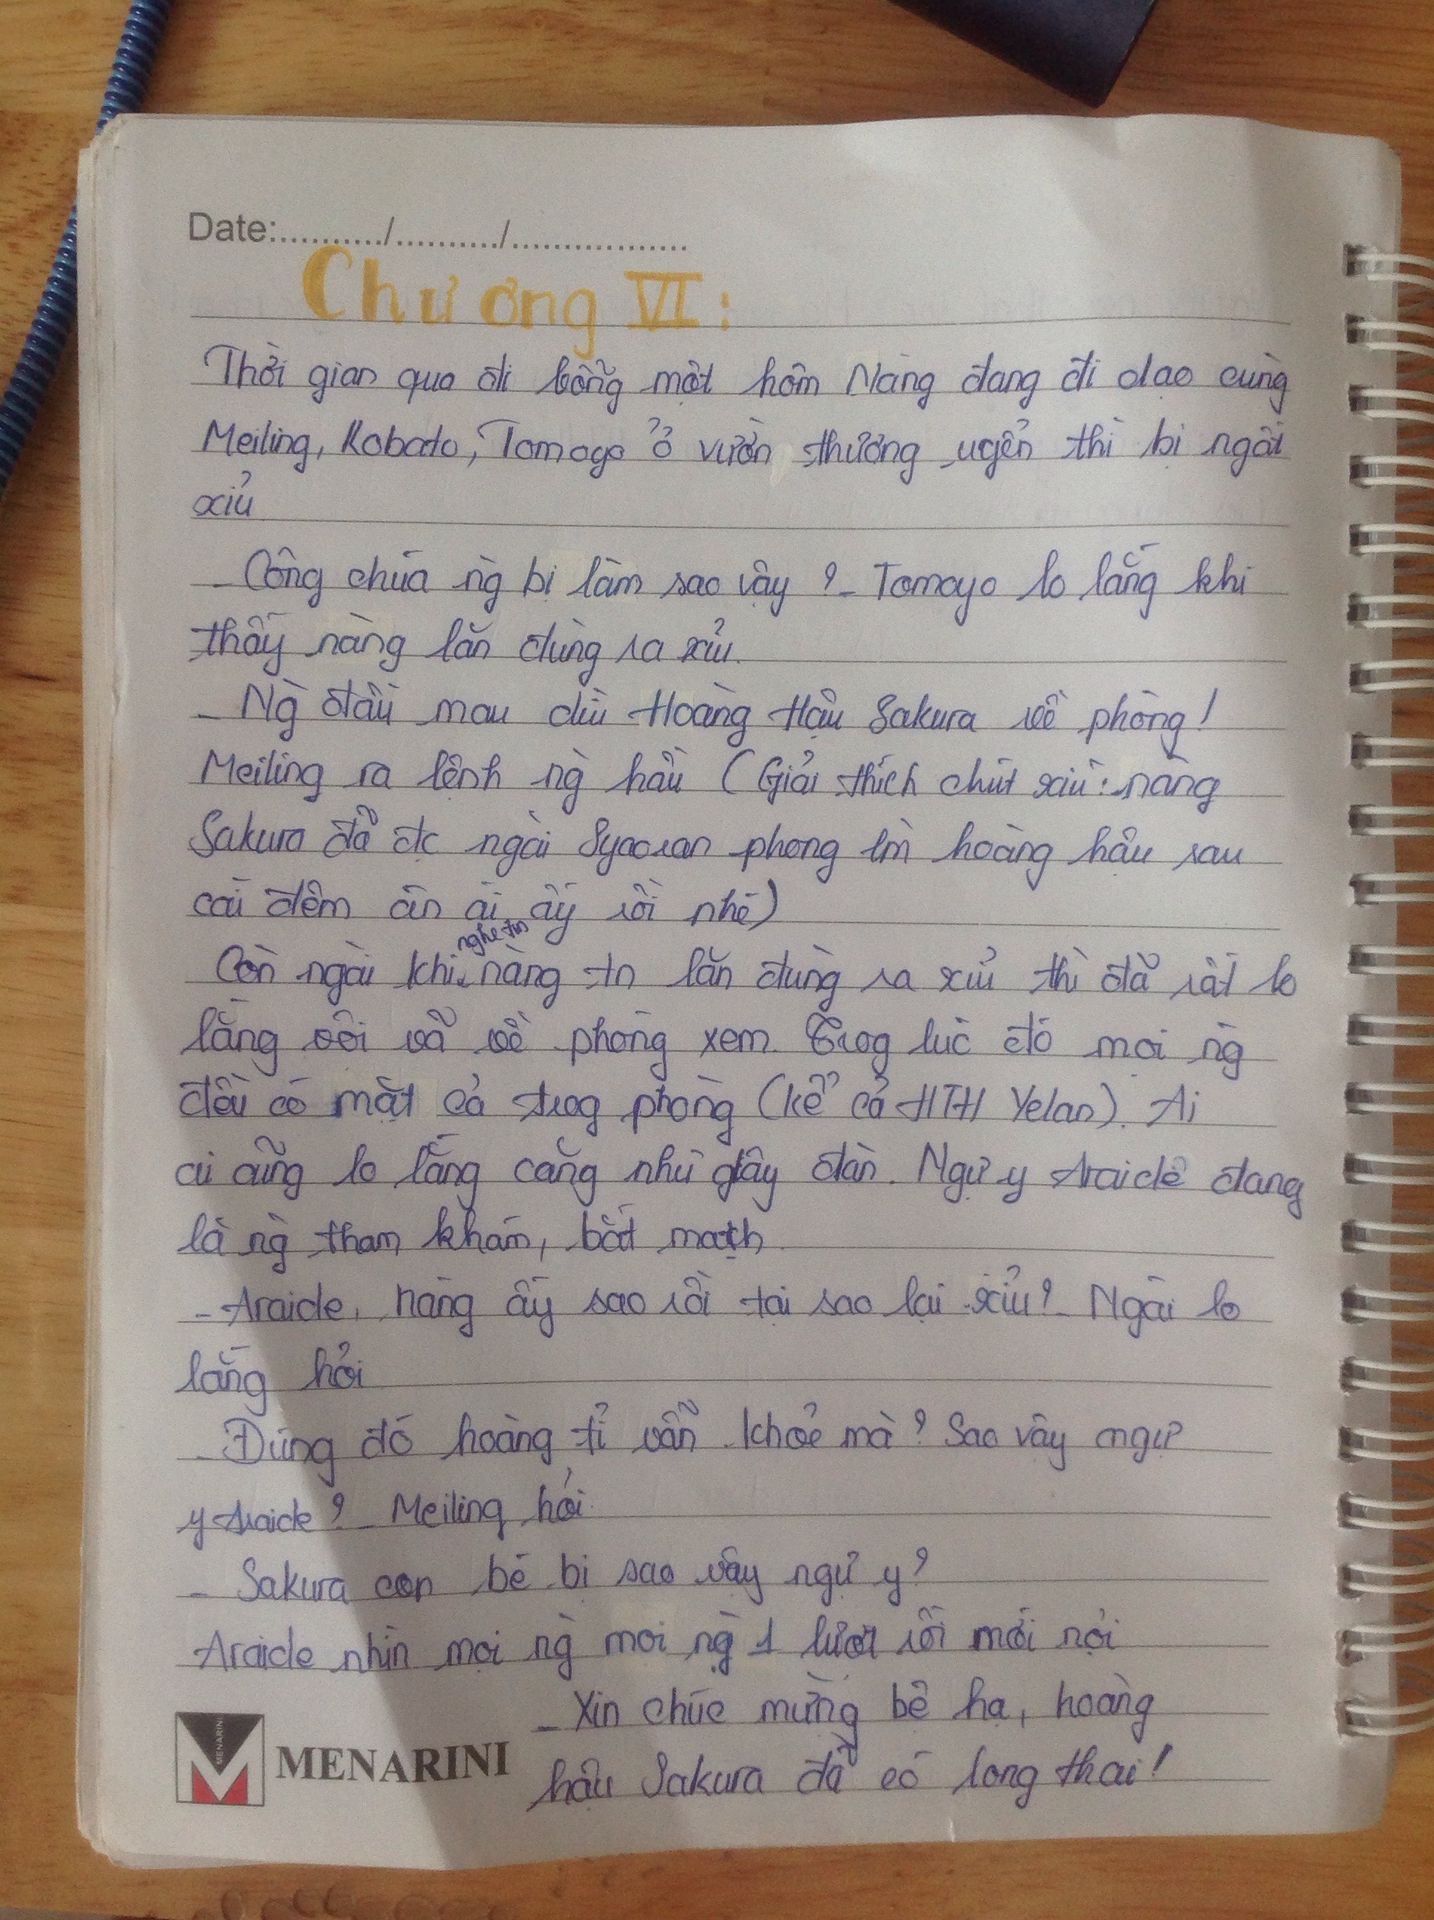 Date:.........../........../.................
Chương VI:
Thời gian qua đi bỗng một hôm Nàng đang đi dạo cùng
Meiling, Kobato, Tomoyo ở vườn thượng uyển thì bị ngất
xỉu
_ Công chúa ng bị làm sao vậy ? _ Tomoyo lo lắng khi
thấy nàng lăn đùng ra xỉu.
_ Ng đâu mau dìu Hoàng Hậu Sakura về phòng!
Meiling ra lệnh ng hầu (Giải thích chút xíu: nàng
Sakura đã đc ngài Syaoran phong lm hoàng hậu sau
cái đêm ân ái ấy rồi nhé)
Còn ngài khi nghe tin nàng tn lăn đùng ra xỉu thì đã rất lo
lắng vội vã về phòng xem. Trog lúc đó mọi ng
đều có mặt cả trog phòng (kể cả HTH Yelan). Ai
ai cũng lo lắng căng như dây đàn. Ngự y Araide đang
là ng tham khám, bắt mạch
_ Araide, nàng ấy sao rồi tại sao lại xỉu? _ Ngài lo
lắng hỏi
_ Đúng đó hoàng tỉ vẫn khoẻ mà? Sao vậy ngự
y Araide? _ Meiling hỏi
_ Sakura con bé bị sao vậy ngự y?
Araide nhìn mọi ng mọi ng 1 lượt rồi mới nói
_ Xin chúc mừng bệ hạ, hoàng
hậu Sakura đã có long thai!
MENARINI
MENARINI